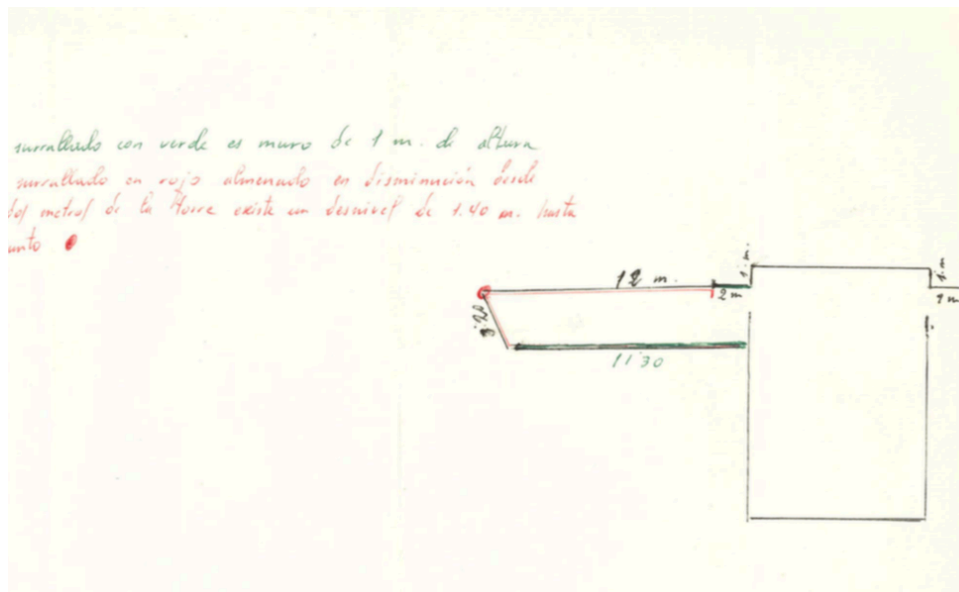 surrallado con verde es muro de 1 m. de altura
surrallado en rojo almenado en disminución desde
metros de la torre existe un desnivel de 1.40 m. hasta
unto
12 m.
2 m
1 m
1 m
1 m
3'20
11'30